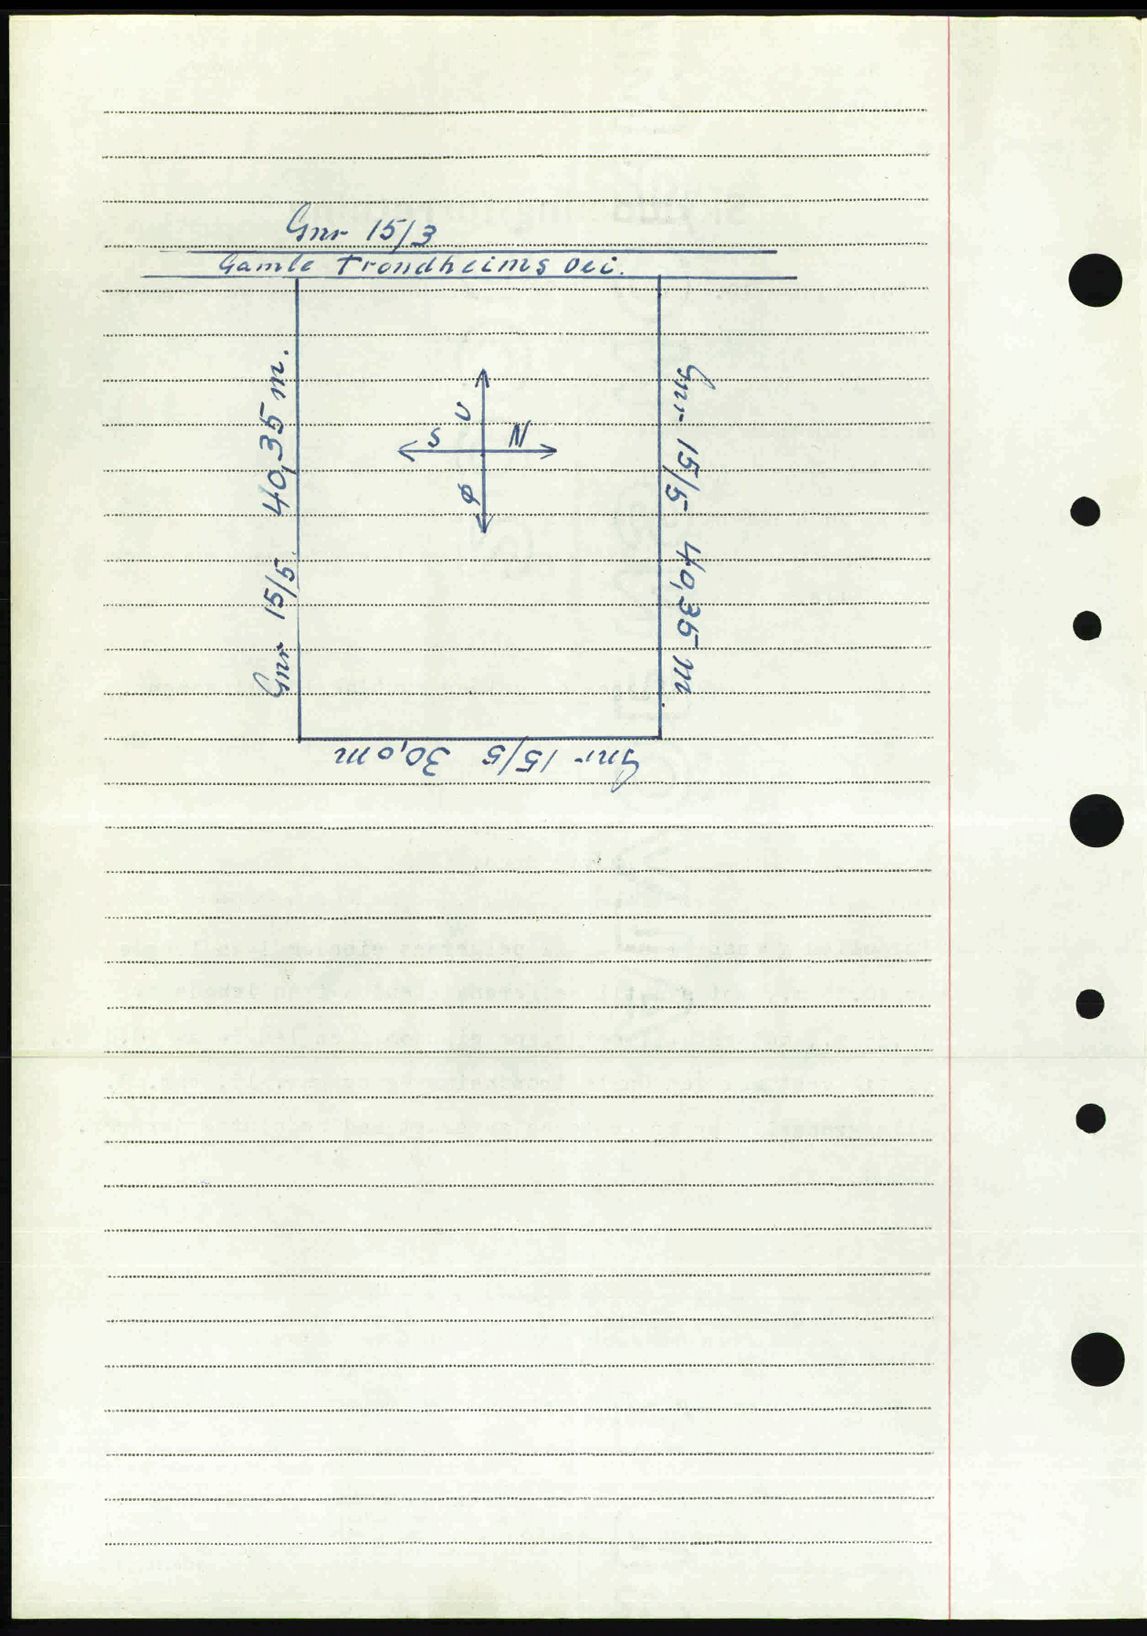 Gnr 15/3
Gamle Trondheims vei.
Gnr 15/5. 40,35 m.
V
S N
Ø
Gnr 15/5 40,35 m
Gnr 15/5 30,0 m